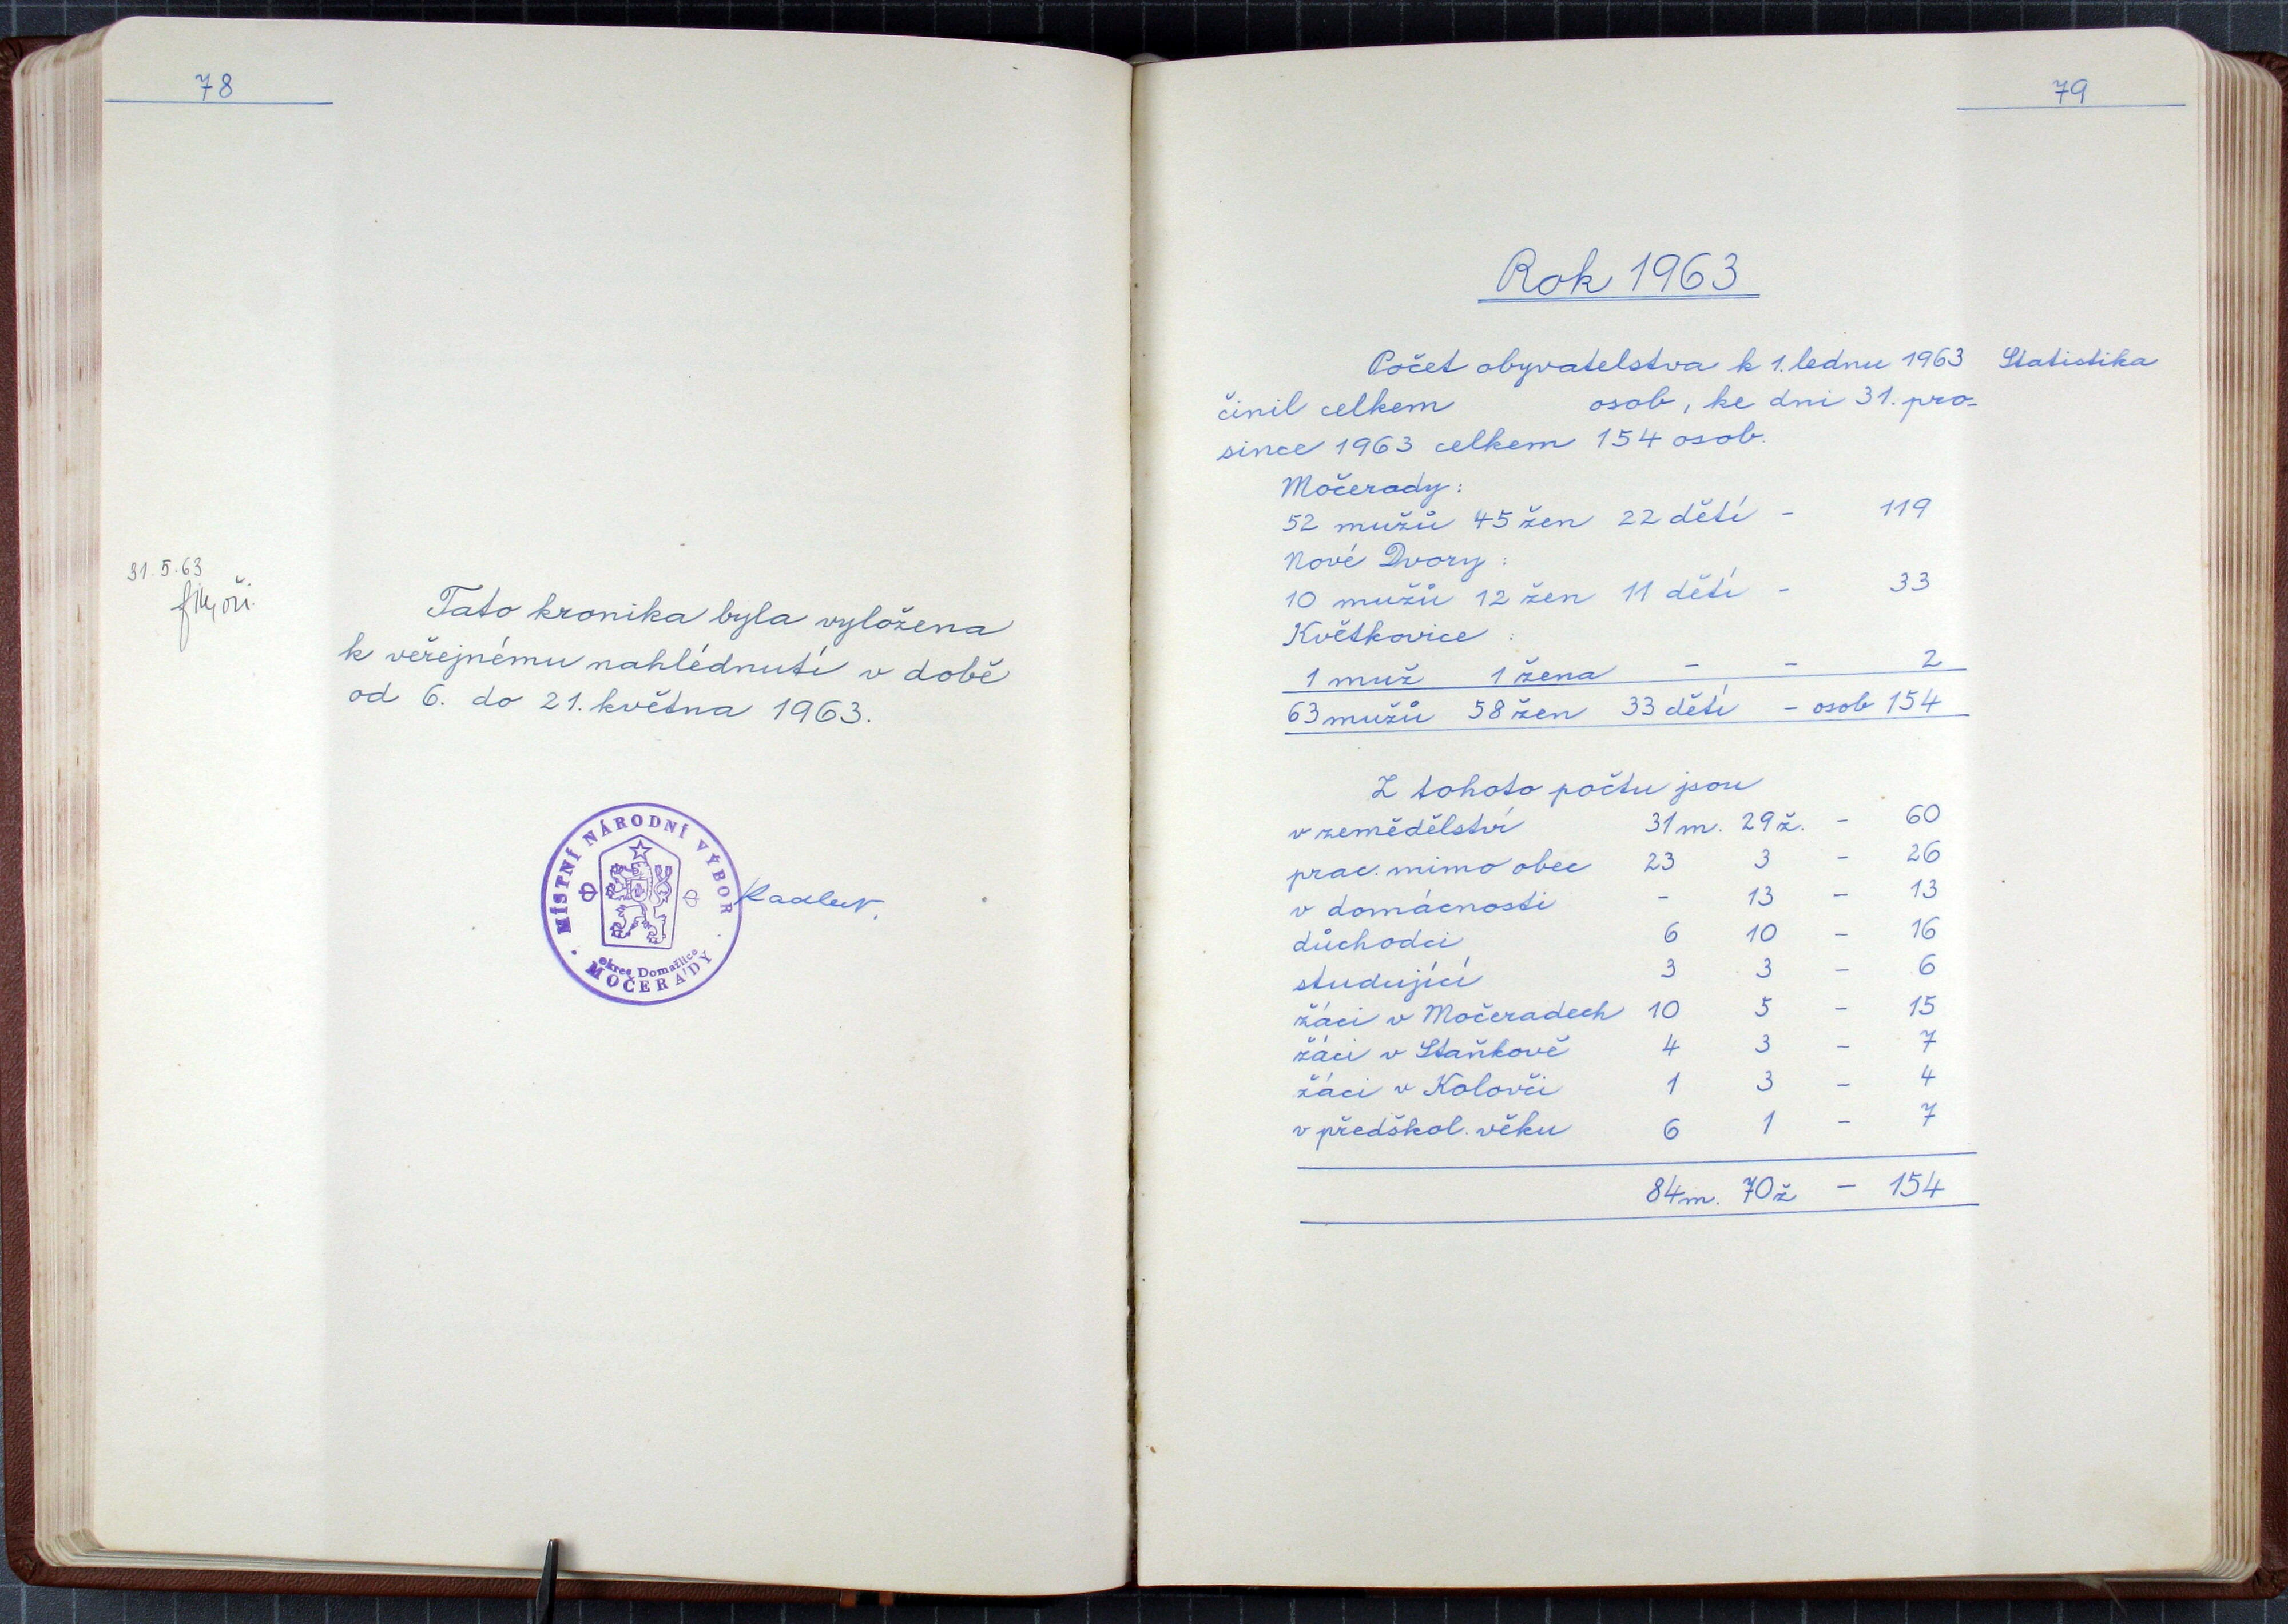 78
31.5.63
Tato kronika byla vyložena
k veřejnému nahlédnutí v době
od 6. do 21. května 1963.
MÍSTNÍ NÁRODNÍ VÝBOR
okres Domažlice
MOČERADY
79
Rok 1963
Počet obyvatelstva k 1. lednu 1963 Statistika
činil celkem osob, ke dni 31. pro-
since 1963 celkem 154 osob.
Močerady:
52 mužů 45 žen 22 dětí - 119
Nové Dvory:
10 mužů 12 žen 11 dětí - 33
Květkovice :
1 muž 1 žena - - 2
63 mužů 58 žen 33 dětí - osob 154
Z tohoto počtu jsou
v zemědělství 31 m. 29 ž. - 60
prac. mimo obec 23 3 - 26
v domácnosti - 13 - 13
důchodci 6 10 - 16
studující 3 3 - 6
žáci v Močeradech 10 5 - 15
žáci v Staňkově 4 3 - 7
žáci v Kolovči 1 3 - 4
v předškol. věku 6 1 - 7
84 m. 70 ž - 154